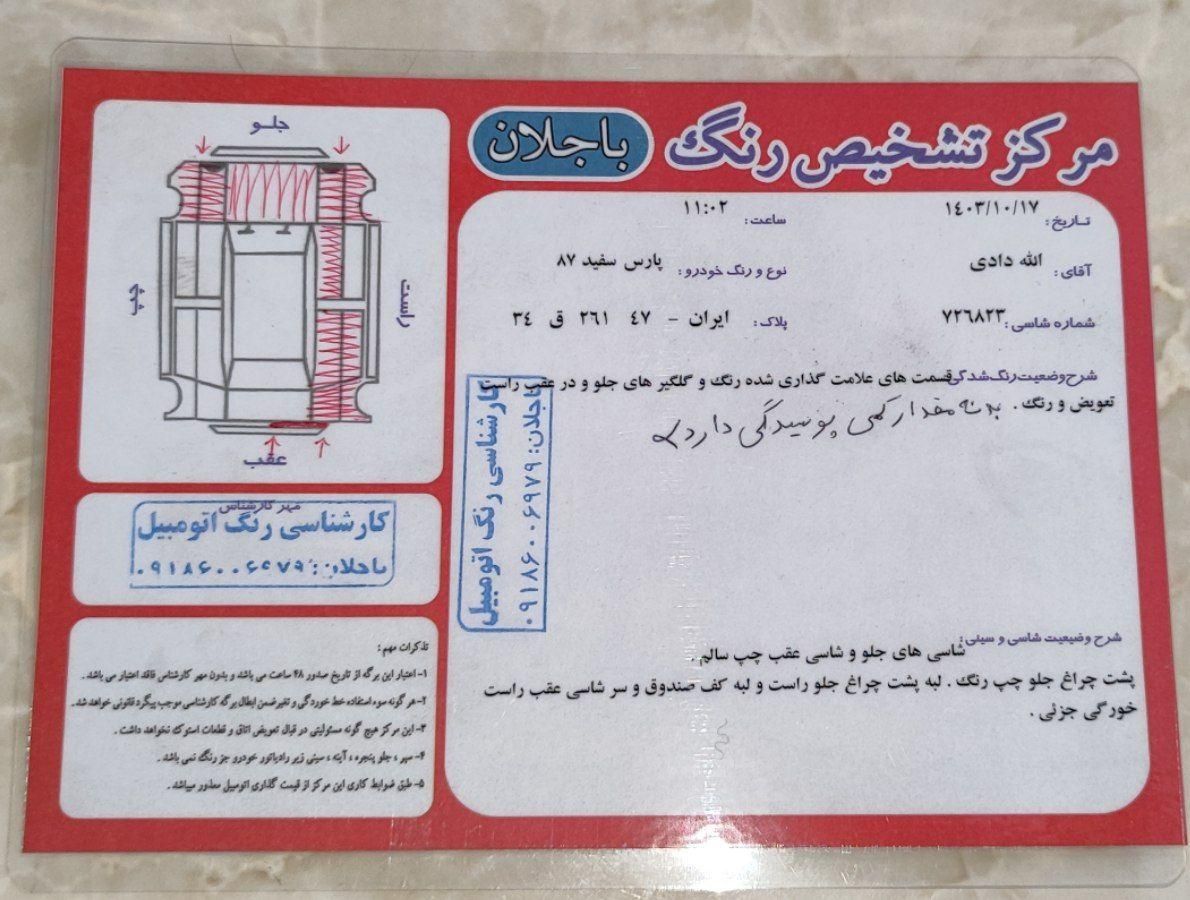 مرکز تشخیص رنگ باجلان
تاریخ: ۱٤۰۳/۱۰/۱۷ ساعت: ۱۱:۰۲
آقای: الله دادی نوع و رنگ خودرو: پارس سفید ۸۷
شماره شاسی: ۷۲٦۸۲۳ پلاک: ایران - ٤۷ ۲٦۱ ق ۳٤
شرح وضعیت رنگ شدگی قسمت های علامت گذاری شده رنگ و گلگیر های جلو و در عقب راست
تعویض و رنگ . بدنه مقدار کمی پوسیدگی دارد
کارشناسی رنگ اتومبیل
باجلان: ۰۹۱۸۶۰۰۶۹۷۹
شرح وضیعیت شاسی و سینی: شاسی های جلو و شاسی عقب چپ سالم .
پشت چراغ جلو چپ رنگ . لبه پشت چراغ جلو راست و لبه کف صندوق و سر شاسی عقب راست
خورگی جزئی .
جلو
چپ
راست
عقب
مهر کارشناس
کارشناسی رنگ اتومبیل
باجلان: ۰۹۱۸۶۰۰۶۹۷۹
تذکرات مهم :
۱- اعتبار این برگه از تاریخ صدور ۴۸ ساعت می باشد و بدون مهر کارشناس فاقد اعتبار می باشد .
۲- هر گونه سوء استفاده خط خوردگی و تغیر ضمن ابطال برگه کارشناسی موجب پیگرد قانونی خواهد شد .
۳- این مرکز هیچ گونه مسئولیتی در قبال تعویض اتاق و قطعات استوک نخواهد داشت .
۴- سپر ، جلو پنجره ، آینه ، سینی زیر رادیاتور خودرو جز رنگ نمی باشد .
۵- طبق ضوابط کاری این مرکز از قیمت گذاری اتومبیل معذور میباشد .